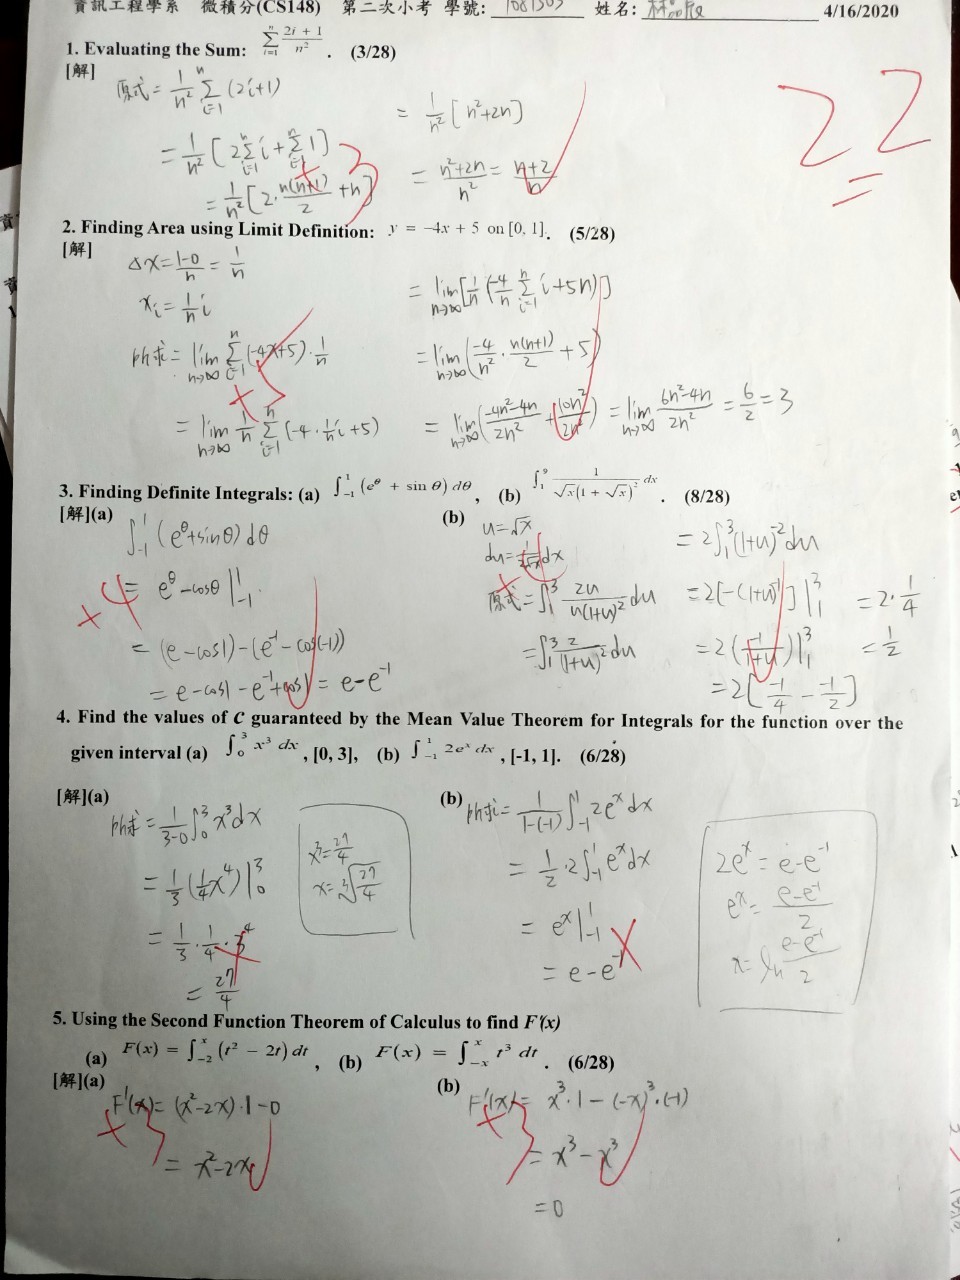 資訊工程學系 微積分(CS148) 第二次小考 學號: 1081303 姓名: 4/16/2020
1. Evaluating the Sum: \sum_{i=1}^{n} \frac{2i+1}{n^2} . (3/28)
[解]
原式 = \frac{1}{n^2} \sum_{i=1}^{n} (2i+1)
= \frac{1}{n^2} [2\sum_{i=1}^{n} i + \sum_{i=1}^{n} 1]
= \frac{1}{n^2} [2 \cdot \frac{n(n+1)}{2} + n]
= \frac{1}{n^2} [n^2+2n]
= \frac{n^2+2n}{n^2} = \frac{n+2}{n}
+3
22
2. Finding Area using Limit Definition: y = -4x + 5 on [0, 1]. (5/28)
[解]
Δx = \frac{1-0}{n} = \frac{1}{n}
x_i = \frac{1}{n} i
所求 = \lim_{n→∞} \sum_{i=1}^{n} (-4x+5) \cdot \frac{1}{n}
= \lim_{n→∞} \frac{1}{n} \sum_{i=1}^{n} (-4 \cdot \frac{1}{n} i + 5)
= \lim_{n→∞} [\frac{1}{n} (\frac{-4}{n} \sum_{i=1}^{n} i + 5n)]
= \lim_{n→∞} (\frac{-4}{n^2} \cdot \frac{n(n+1)}{2} + 5)
= \lim_{n→∞} (\frac{-4n^2-4n}{2n^2} + \frac{10n^2}{2n^2}) = \lim_{n→∞} \frac{6n^2-4n}{2n^2} = \frac{6}{2} = 3
+5
3. Finding Definite Integrals: (a) \int_{-1}^{1} (e^θ + sin θ) dθ , (b) \int_{1}^{9} \frac{1}{\sqrt{x}(1+\sqrt{x})^2} dx . (8/28)
[解](a)
\int_{-1}^{1} (e^θ + sinθ) dθ
= e^θ - cosθ |_{-1}^{1}
= (e-cos1)-(e^{-1}-cos(-1))
= e-cos1-e^{-1}+cos1 = e-e^{-1}
+4
(b)
u = \sqrt{x}
du = \frac{1}{2\sqrt{x}} dx
原式 = \int_{1}^{3} \frac{2u}{u(1+u)^2} du
= \int_{1}^{3} \frac{2}{(1+u)^2} du
= 2\int_{1}^{3} (1+u)^{-2} du
= 2[-(1+u)^{-1}] |_{1}^{3}
= 2(\frac{-1}{1+u}) |_{1}^{3}
= 2[\frac{-1}{4} - \frac{-1}{2}]
= 2 \cdot \frac{1}{4}
= \frac{1}{2}
+4
4. Find the values of C guaranteed by the Mean Value Theorem for Integrals for the function over the
given interval (a) \int_{0}^{3} x^3 dx , [0, 3], (b) \int_{-1}^{1} 2e^x dx , [-1, 1]. (6/28)
[解](a)
所求 = \frac{1}{3-0} \int_{0}^{3} x^3 dx
= \frac{1}{3} (\frac{1}{4} x^4) |_{0}^{3}
= \frac{1}{3} \cdot \frac{1}{4} \cdot 3^4
= \frac{27}{4}
x^3 = \frac{27}{4}
x = \sqrt[3]{\frac{27}{4}}
(b)
所求 = \frac{1}{1-(-1)} \int_{-1}^{1} 2e^x dx
= \frac{1}{2} \cdot 2\int_{-1}^{1} e^x dx
= e^x |_{-1}^{1}
= e-e^{-1}
2e^x = e-e^{-1}
e^x = \frac{e-e^{-1}}{2}
x = ln \frac{e-e^{-1}}{2}
5. Using the Second Function Theorem of Calculus to find F'(x)
(a) F(x) = \int_{-2}^{x} (t^2 - 2t) dt , (b) F(x) = \int_{-x}^{x} t^3 dt . (6/28)
[解](a)
F'(x) = (x^2-2x) \cdot 1 - 0
= x^2-2x
+3
(b)
F'(x) = x^3 \cdot 1 - (-x)^3 \cdot (-1)
= x^3 - x^3
= 0
+3